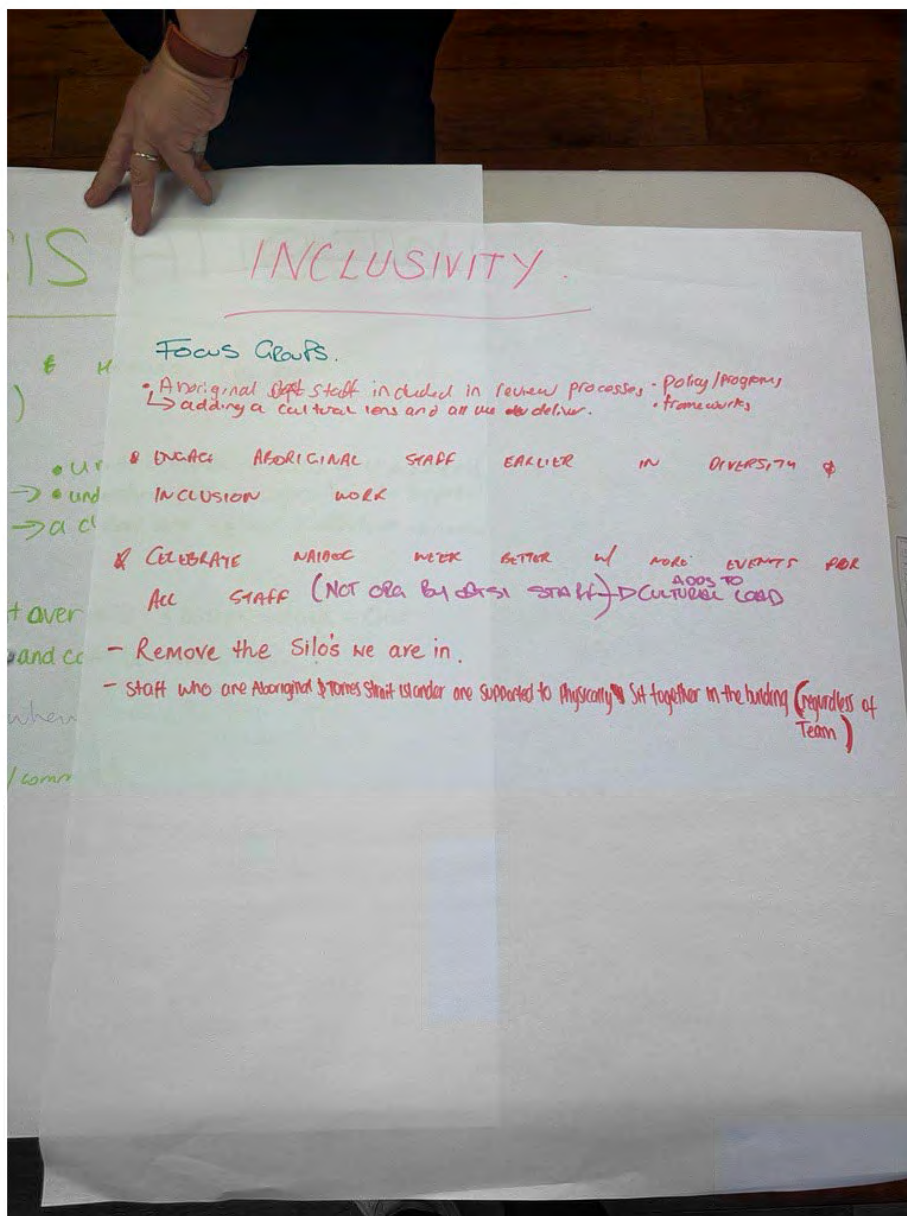 INCLUSIVITY.
Focus Groups.
• Aboriginal staff included in review processes • policy/programs
↳ adding a cultural lens and all we deliver. • frameworks
ENGAGE ABORIGINAL STAFF EARLIER IN DIVERSITY &
INCLUSION WORK
CELEBRATE NAIDOC WEEK BETTER W/ MORE EVENTS FOR
ALL STAFF (NOT ORG BY ATSI STAFF) → ADDS TO CULTURAL LOAD
- Remove the Silo's we are in.
- Staff who are Aboriginal & Torres Strait Islander are supported to Physically Sit together in the building (regardless of
Team)
IS
)
• und
→ a
t over
and co
when
/comm